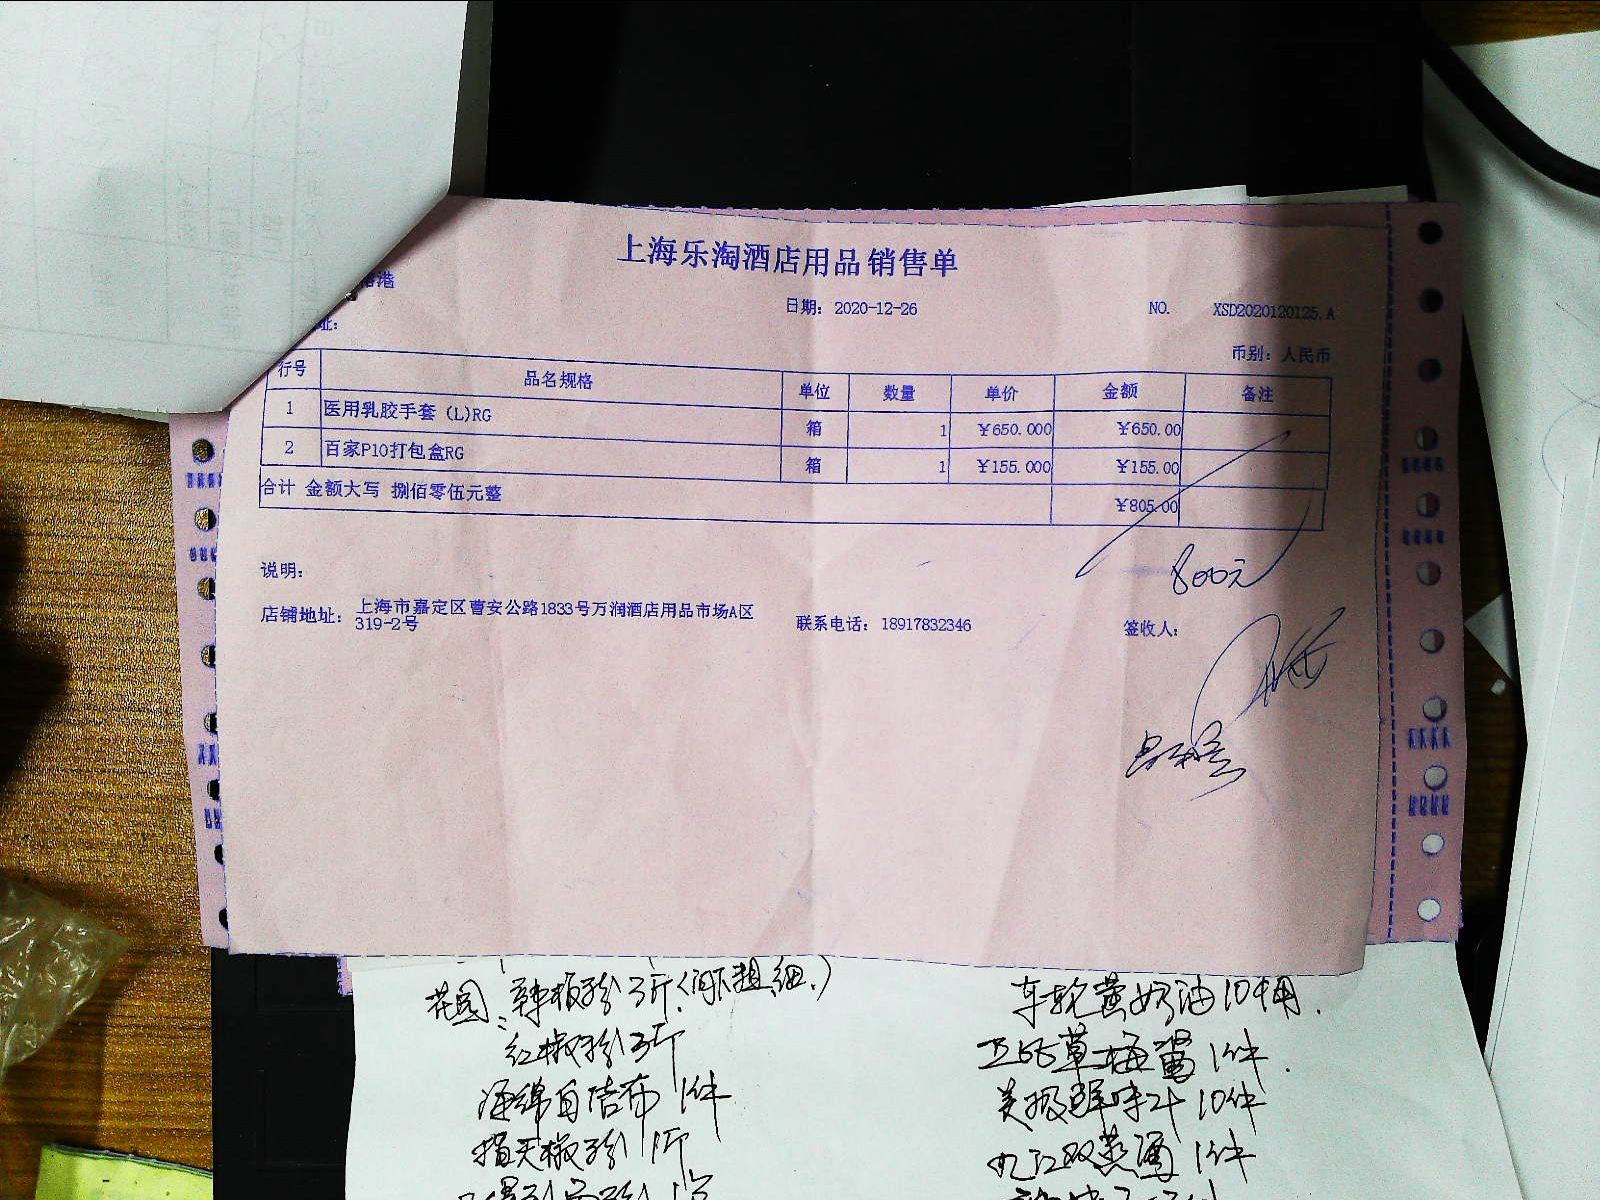 上海乐淘酒店用品销售单
港
日期: 2020-12-26
NO. XSD2020120125.A
址:
币别: 人民币
行号 品名规格 单位 数量 单价 金额 备注
1 医用乳胶手套 (L)RG 箱 1 ¥650.000 ¥650.00
2 百家P10打包盒RG 箱 1 ¥155.000 ¥155.00
合计 金额大写 捌佰零伍元整 ¥805.00
800元
说明:
店铺地址: 上海市嘉定区曹安公路1833号万润酒店用品市场A区
319-2号
联系电话: 18917832346
签收人:
花园: 辣椒粉3斤
车轮黄奶油10桶.
红椒粉3斤
草莓酱1件.
海绵百洁布1件
美极鲜味汁10件
指天椒粉1斤
九江双蒸酒1件